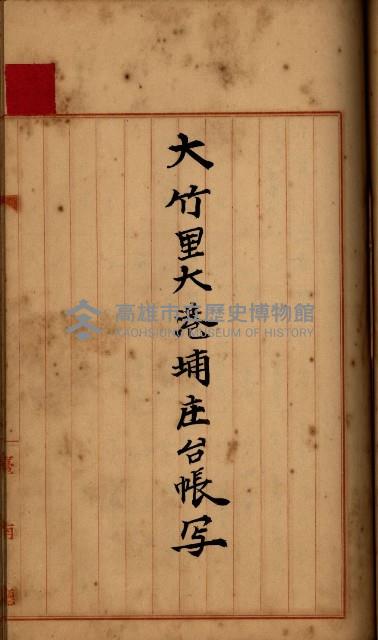 大竹里大港埔庄台帳写
高雄市立歷史博物館
KAOHSIUNG MUSEUM OF HISTORY
臺南